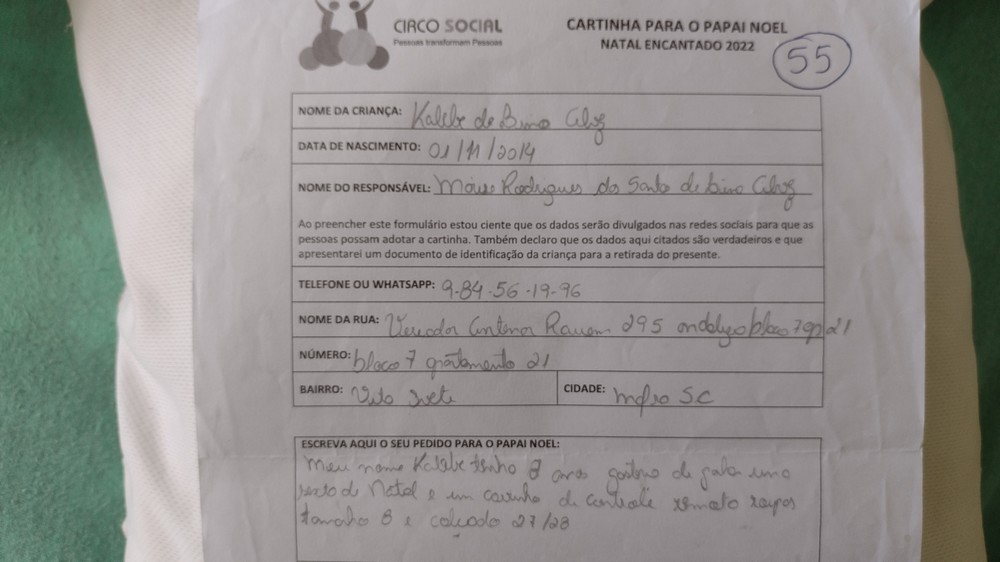 CIRCO SOCIAL
Pessoas transformam Pessoas
CARTINHA PARA O PAPAI NOEL
NATAL ENCANTADO 2022
55
NOME DA CRIANÇA: Kalebe de
DATA DE NASCIMENTO: 01/11/2014
NOME DO RESPONSÁVEL: Rodrigues dos Santo de
Ao preencher este formulário estou ciente que os dados serão divulgados nas redes sociais para que as
pessoas possam adotar a cartinha. Também declaro que os dados aqui citados são verdadeiros e que
apresentarei um documento de identificação da criança para a retirada do presente.
TELEFONE OU WHATSAPP: 9-84-56-19-96
NOME DA RUA: Antenor 295 bloco 7 21
NÚMERO: bloco 7 apartamento 21
BAIRRO: CIDADE: Mafra SC
ESCREVA AQUI O SEU PEDIDO PARA O PAPAI NOEL:
Meu nome Kalebe tenho anos de uma
de Natal e um carrinho de controle remoto
tamanho 8 e calçado 27/28